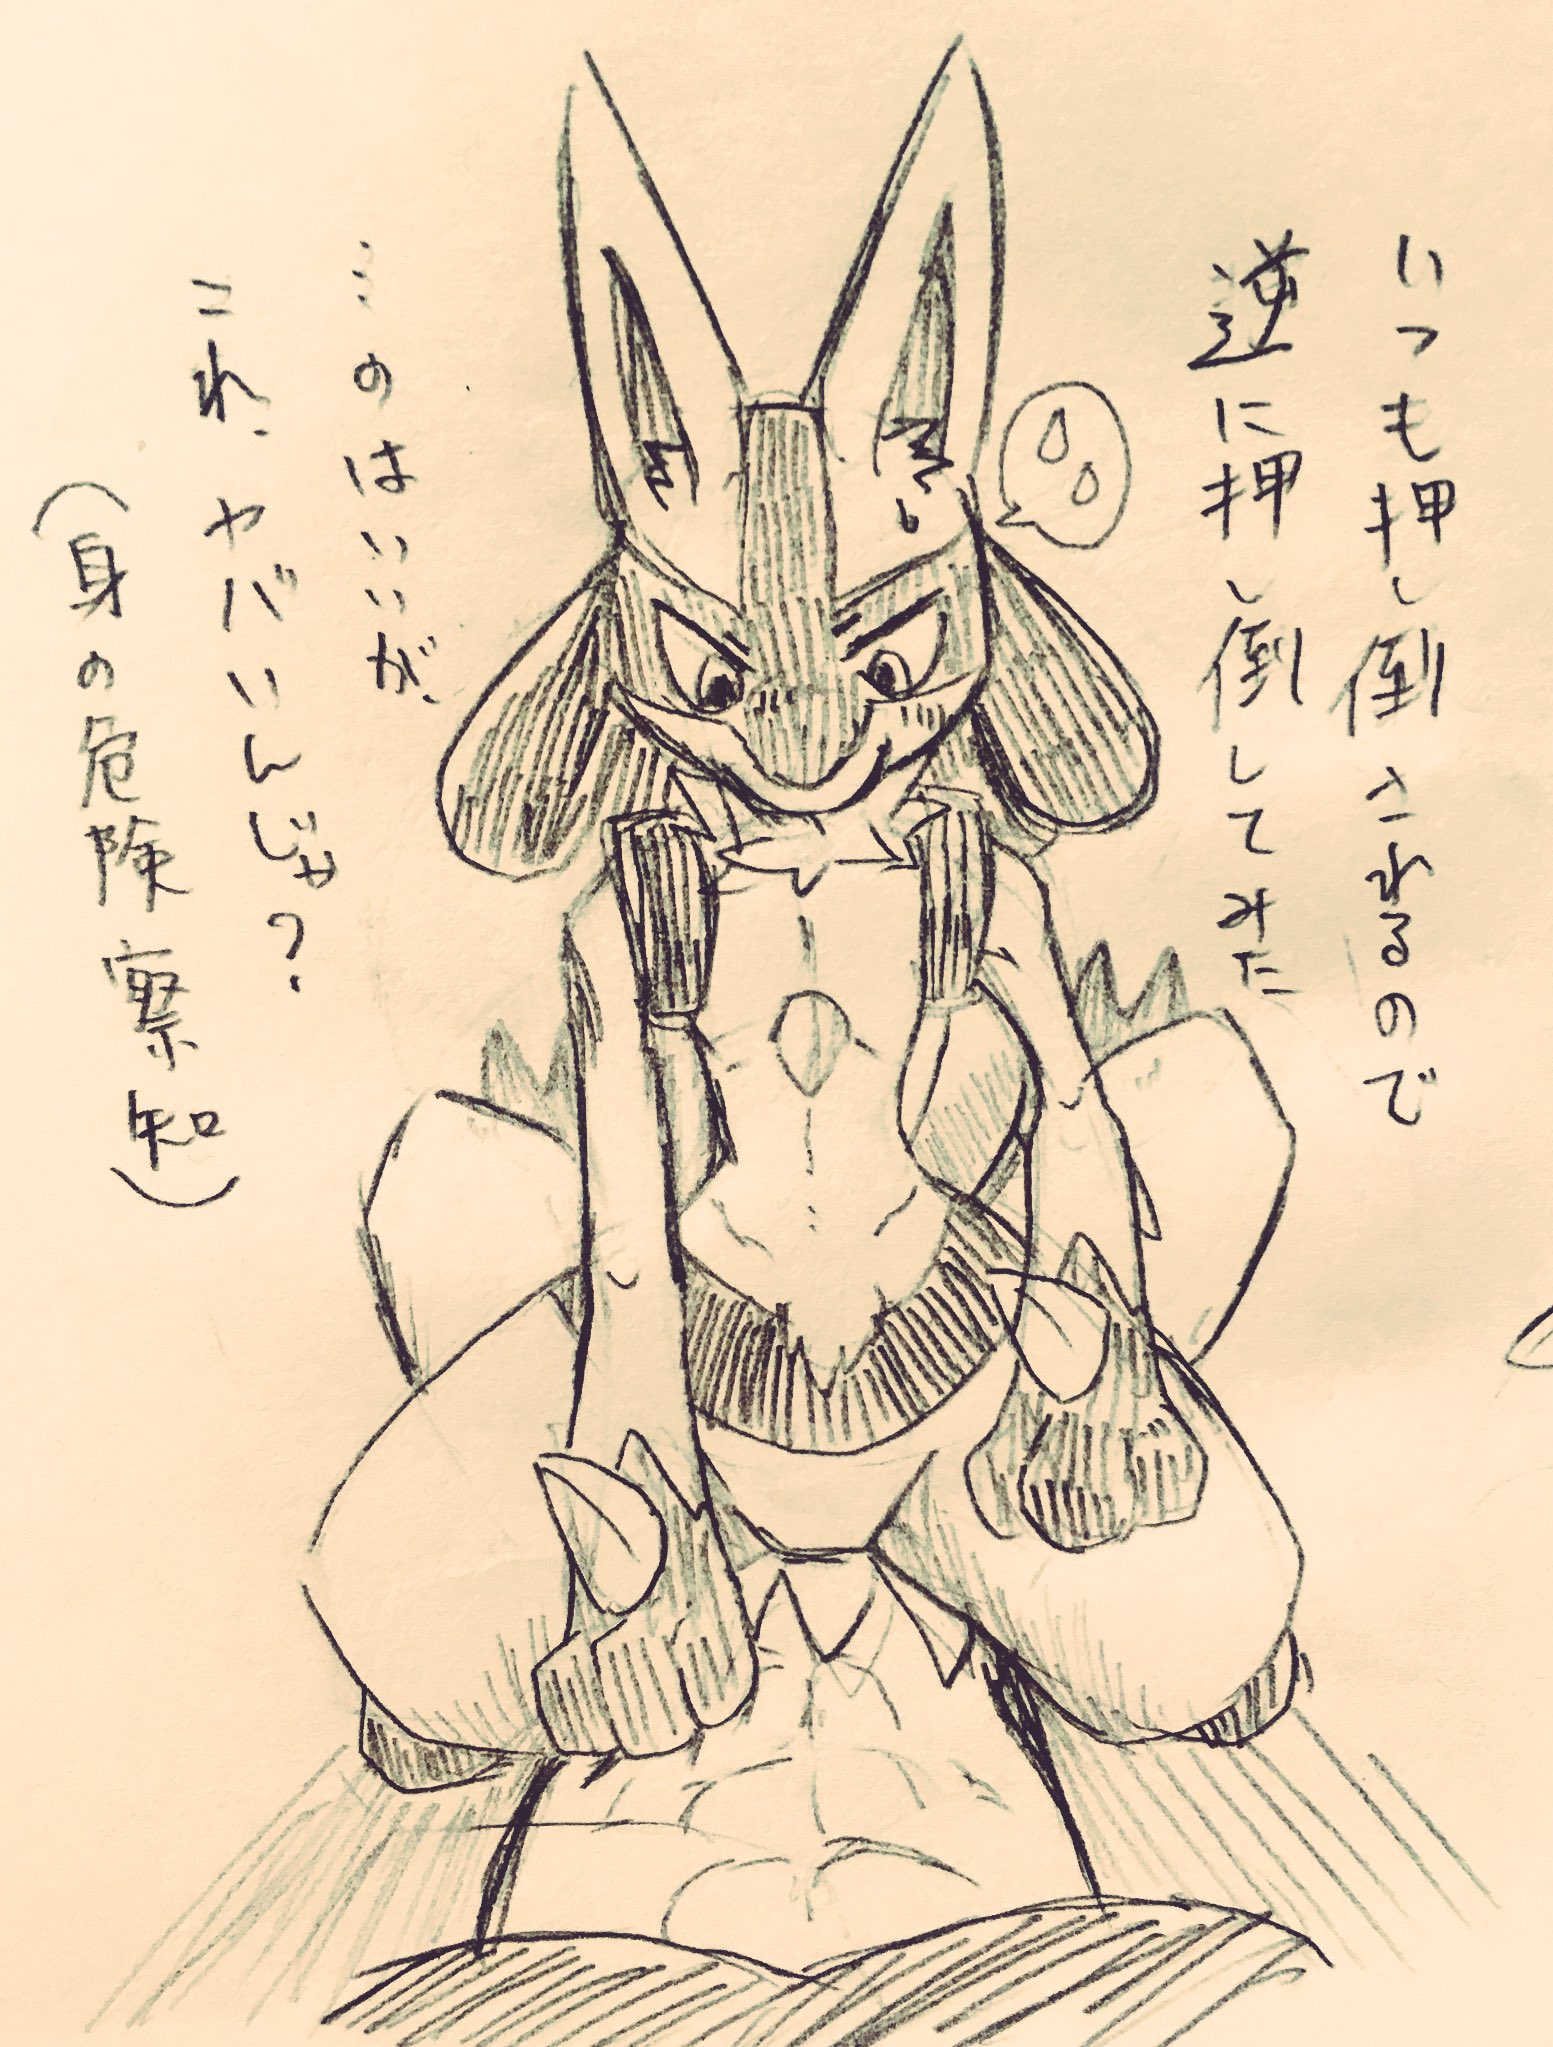 いつも押し倒されるので
逆に押し倒してみた
…のはいいが、
これ、ヤバいんじゃ？
(身の危険察知)